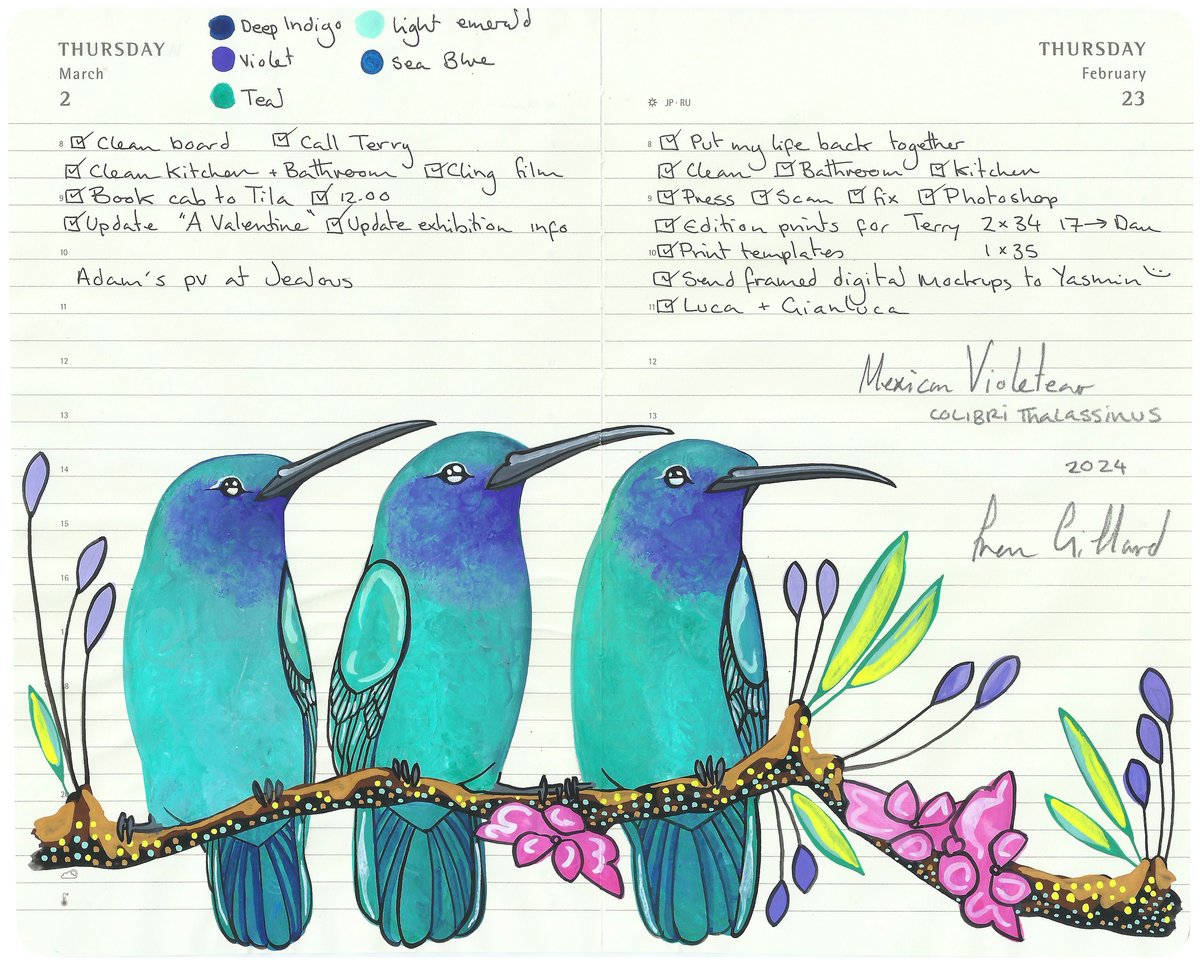 Deep Indigo
Light emerald
Violet
Sea Blue
Teal
THURSDAY
March
2
8 Clean board Call Terry
Clean Kitchen + Bathroom Cling film
9 Book cab to Tila 12.00
Update "A Valentine" Update exhibition info
10
Adam's pv at Jealous
11
12
13
14
15
16
THURSDAY
February
23
JP·RU
8 Put my life back together
Clean Bathroom Kitchen
9 Press Scan fix Photoshop
Edition prints for Terry 2×34 17→Dan
10 Print templates 1×35
Send framed digital Mockups to Yasmin
11 Luca + Gianluca
12
Mexican Violetear
13
COLIBRI Thalassinus
2024
Gillard